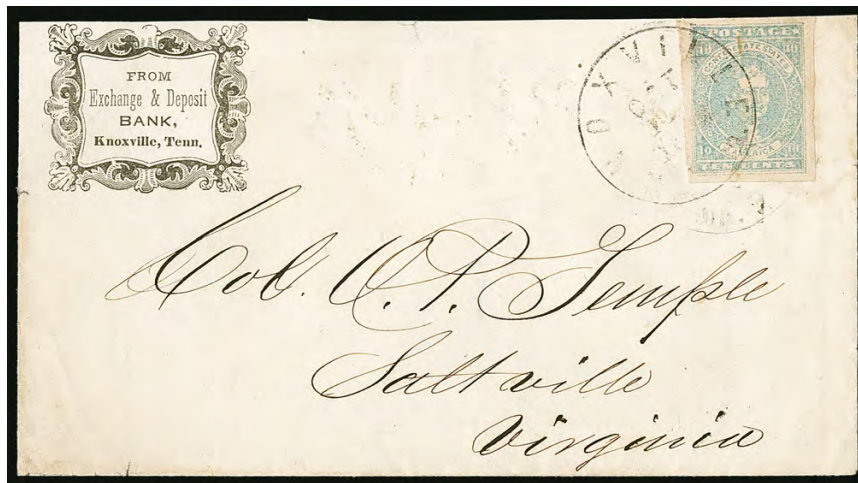 FROM
Exchange & Deposit
BANK,
Knoxville, Tenn.
POSTAGE
10 10
CONFEDERATE STATES
AMERICA
10 10
TEN CENTS
Col. O. P. Temple
Saltville
Virginia